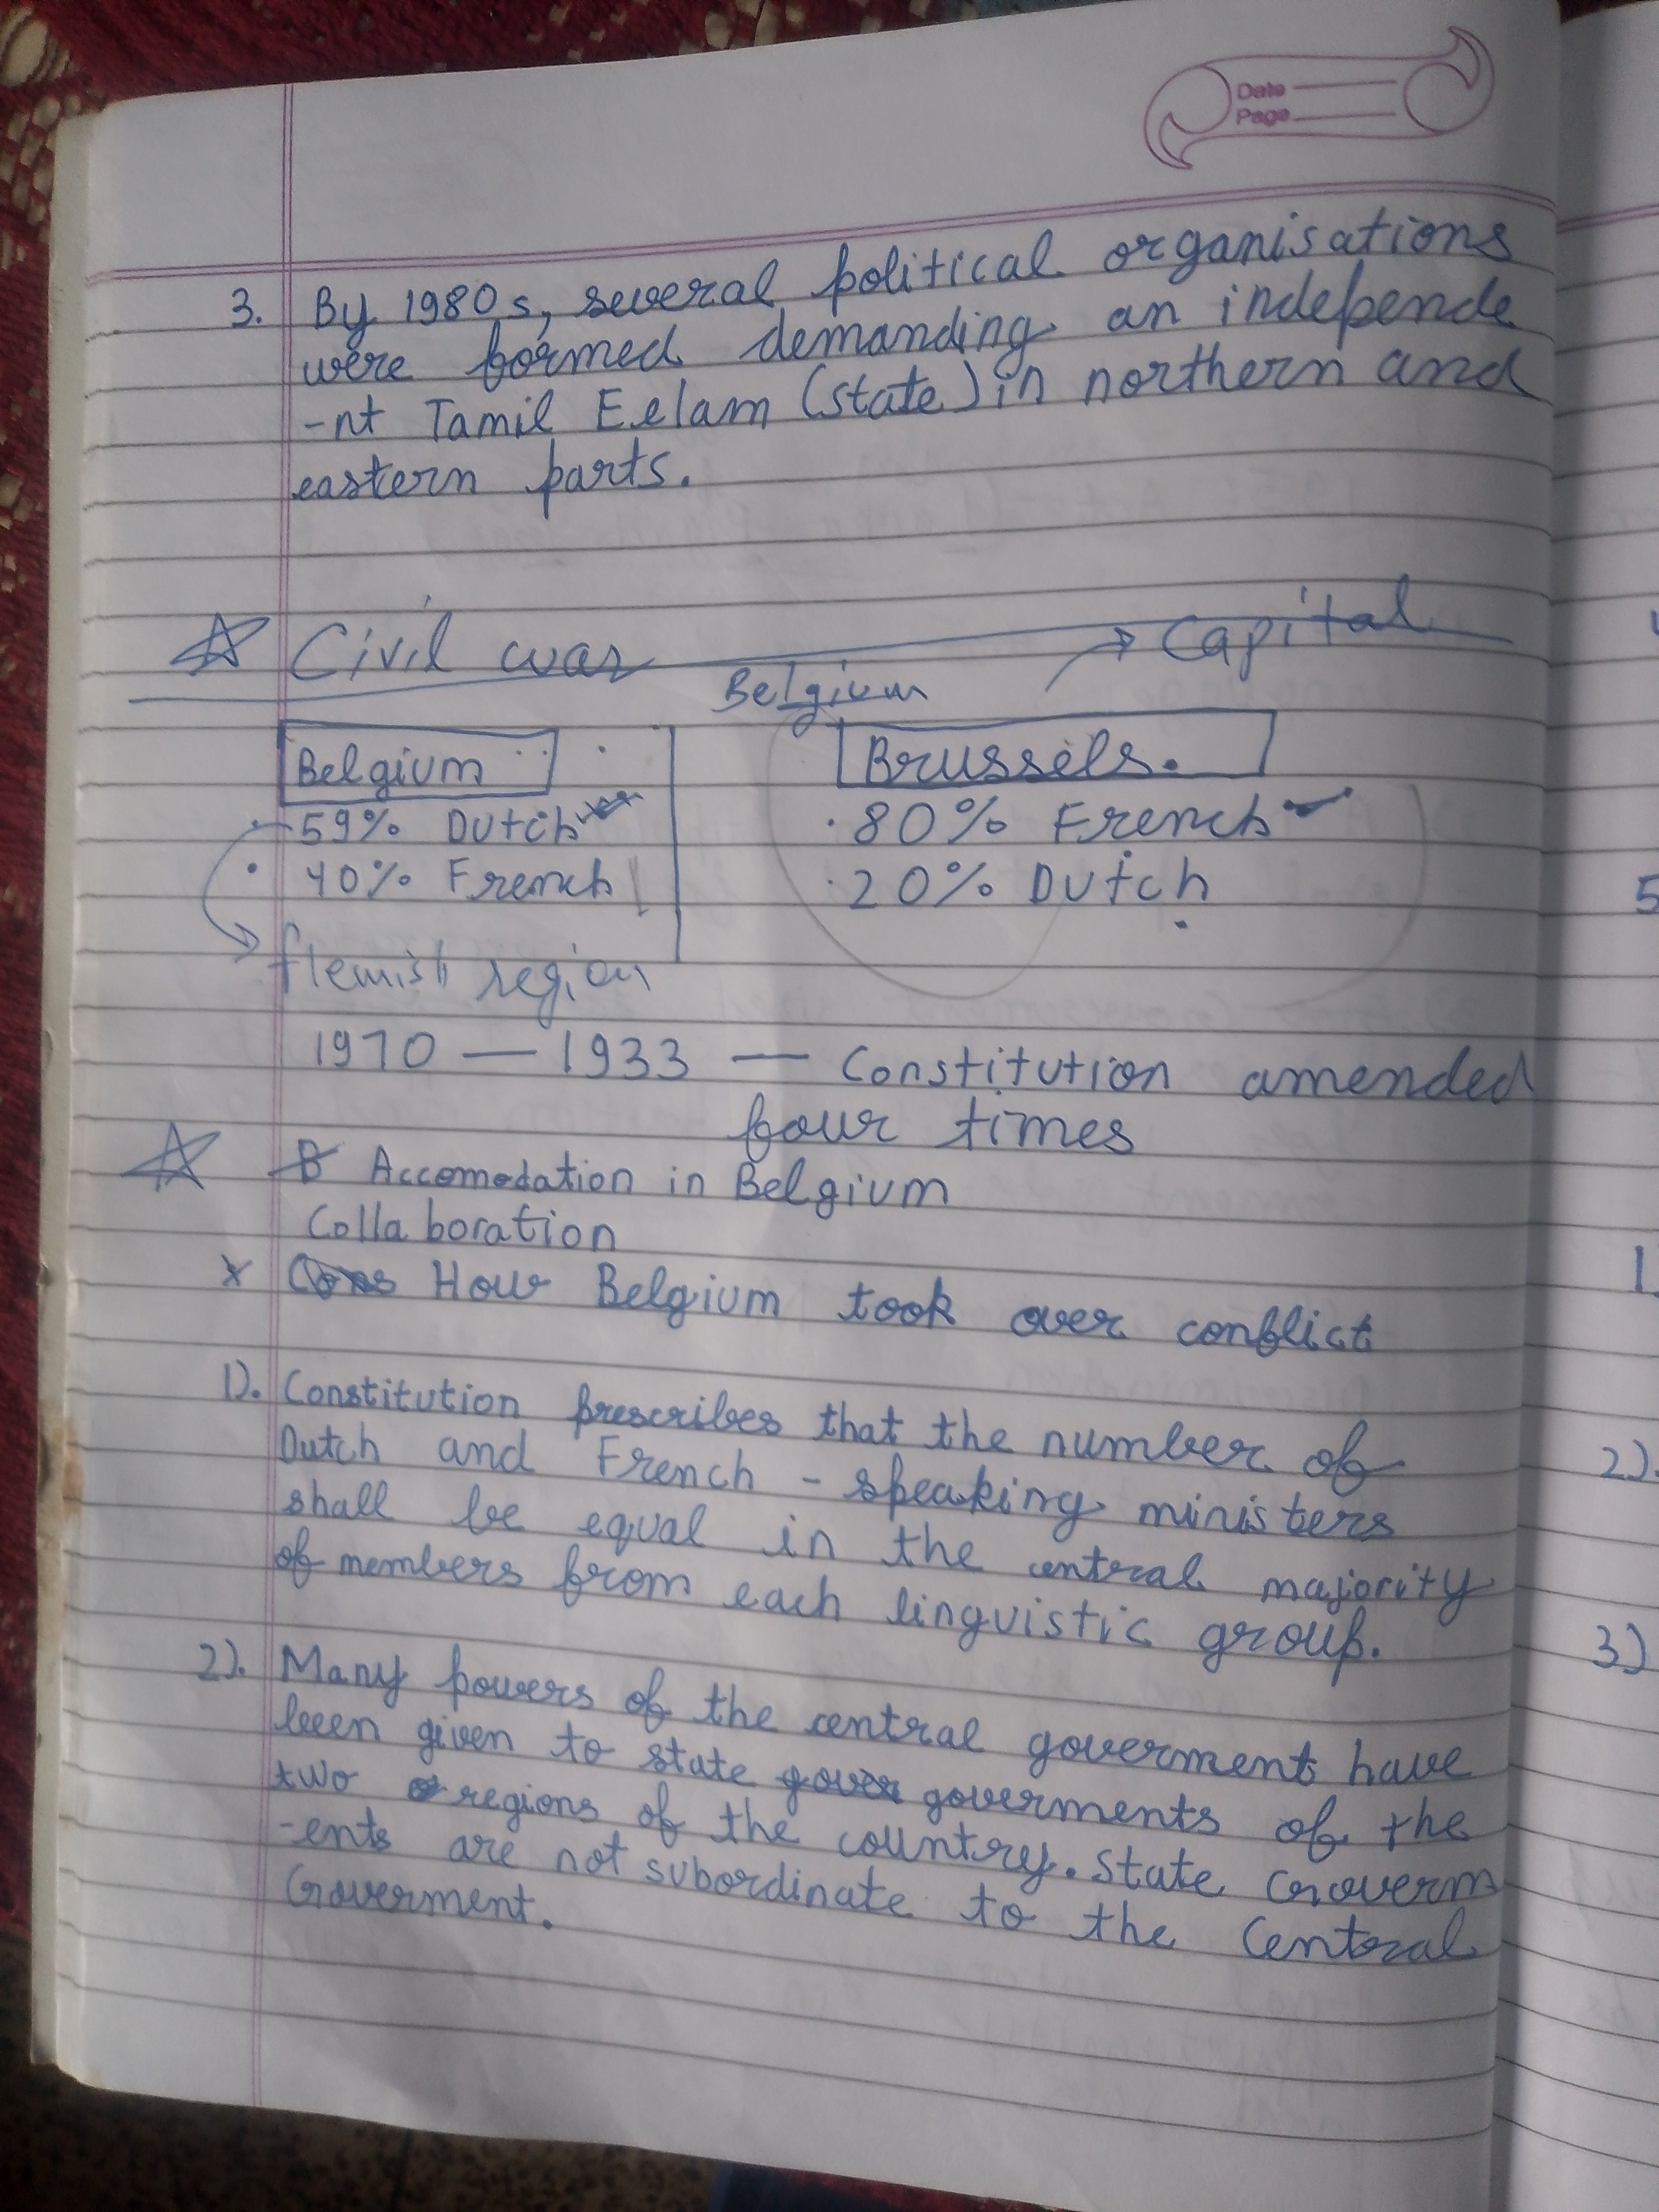 Date
Page
3. By 1980s, several political organisations
were formed demanding an independe
-nt Tamil Eelam (state) in northern and
eastern parts.
Civil war
Capital
Belgium
Belgium
Brussels.
59% Dutch
80% French
40% French
20% Dutch
flemish region
1970 — 1933 — Constitution amended
four times
Accomodation in Belgium
Collaboration
x How Belgium took over conflict
1). Constitution prescribes that the number of
Dutch and French - speaking ministers
shall be equal in the central majority
of members from each linguistic group.
2). Many powers of the central goverment have
been given to state goverments of the
two regions of the country. State Goverm
-ents are not subordinate to the Central
Goverment.
5
1.
2).
3)